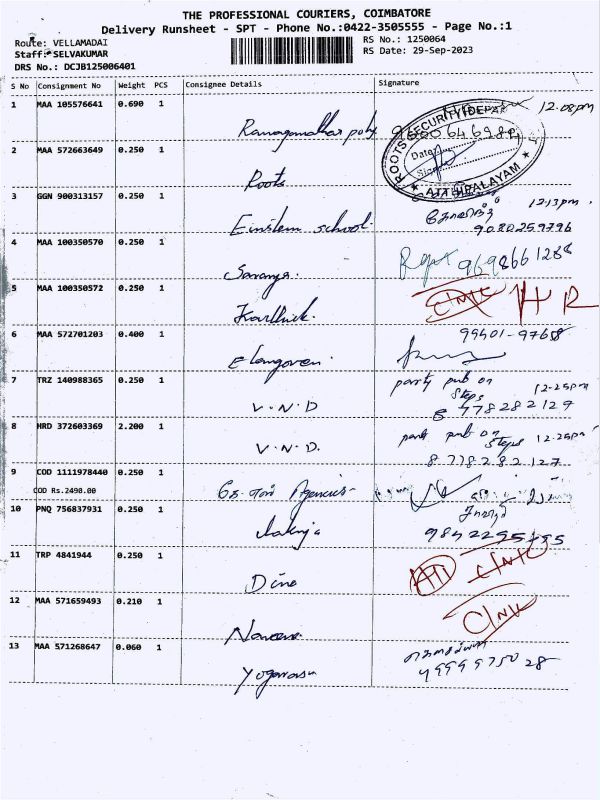 THE PROFESSIONAL COURIERS, COIMBATORE
Delivery Runsheet - SPT - Phone No.:0422-3505555 - Page No.:1
Route: VELLAMADAI
RS No.: 1250064
Staff: SELVAKUMAR
RS Date: 29-Sep-2023
DRS No.: DCJB125006401
S No Consignment No Weight PCS Consignee Details Signature
1 MAA 105576641 0.690 1 12.08pm
ROOTS SECURITY DEPAR
Date:
Sign
ATTHIPALAYAM
2 MAA 572663649 0.250 1 Roots
3 GGN 900313157 0.250 1 Einstein school. 12.13pm
9080259796
4 MAA 100350570 0.250 1 Saranya. 9698661288
5 MAA 100350572 0.250 1 Karthick. HR
6 MAA 572701203 0.400 1 Elangovan 99401-97658
7 TRZ 140988365 0.250 1 V.N.D party put on
Steps 12-25pm
8 778282129
8 HRD 372603369 2.200 1 V.N.D. put on
Steps 12.25pm
8 778282127
9 COD 1111978440 0.250 1 Agencies
COD Rs.2490.00
10 PNQ 756837931 0.250 1
9842295795
11 TRP 4841944 0.250 1 Dino
12 MAA 571659493 0.210 1
13 MAA 571268647 0.060 1 Yogavasu